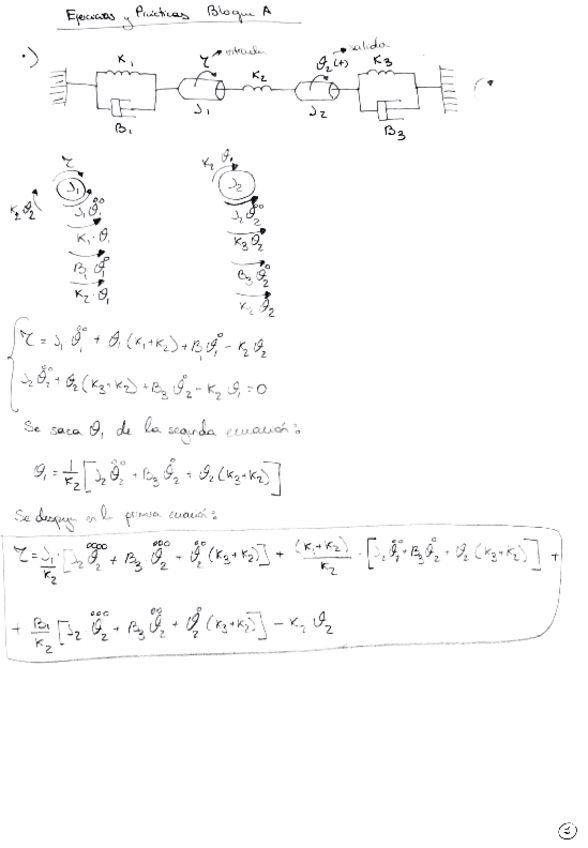 Ejercicios y Prácticas Bloque A
·) K₁ τ → entrada K₂ ϑ₂(t) → salida K₃
B₁ J₁ J₂ B₃
τ K₂ ϑ₁
J₁ J₂
K₂ ϑ₂ J₁ ϑ̈₁ J₂ ϑ̈₂
K₁ · ϑ₁ K₃ ϑ₂
B₁ ϑ̇₁ B₃ ϑ̇₂
K₂ · ϑ₁ K₂ ϑ₂
τ = J₁ ϑ̈₁ + ϑ₁(K₁+K₂) + B₁ ϑ̇₁ - K₂ ϑ₂
J₂ ϑ̈₂ + ϑ₂(K₃+K₂) + B₃ ϑ̇₂ - K₂ ϑ₁ = 0
Se saca ϑ₁ de la segunda ecuación:
ϑ₁ = 1/K₂ [J₂ ϑ̈₂ + B₃ ϑ̇₂ + ϑ₂(K₃+K₂)]
Se en la primera ecuación:
τ = J₁/K₂ · [J₂ ϑ⃜₂ + B₃ ϑ⃛₂ + ϑ̈₂(K₃+K₂)] + (K₁+K₂)/K₂ · [J₂ ϑ̈₂ + B₃ ϑ̇₂ + ϑ₂(K₃+K₂)] +
+ B₁/K₂ [J₂ · ϑ⃛₂ + B₃ ϑ̈₂ + ϑ̇₂(K₃+K₂)] - K₂ ϑ₂